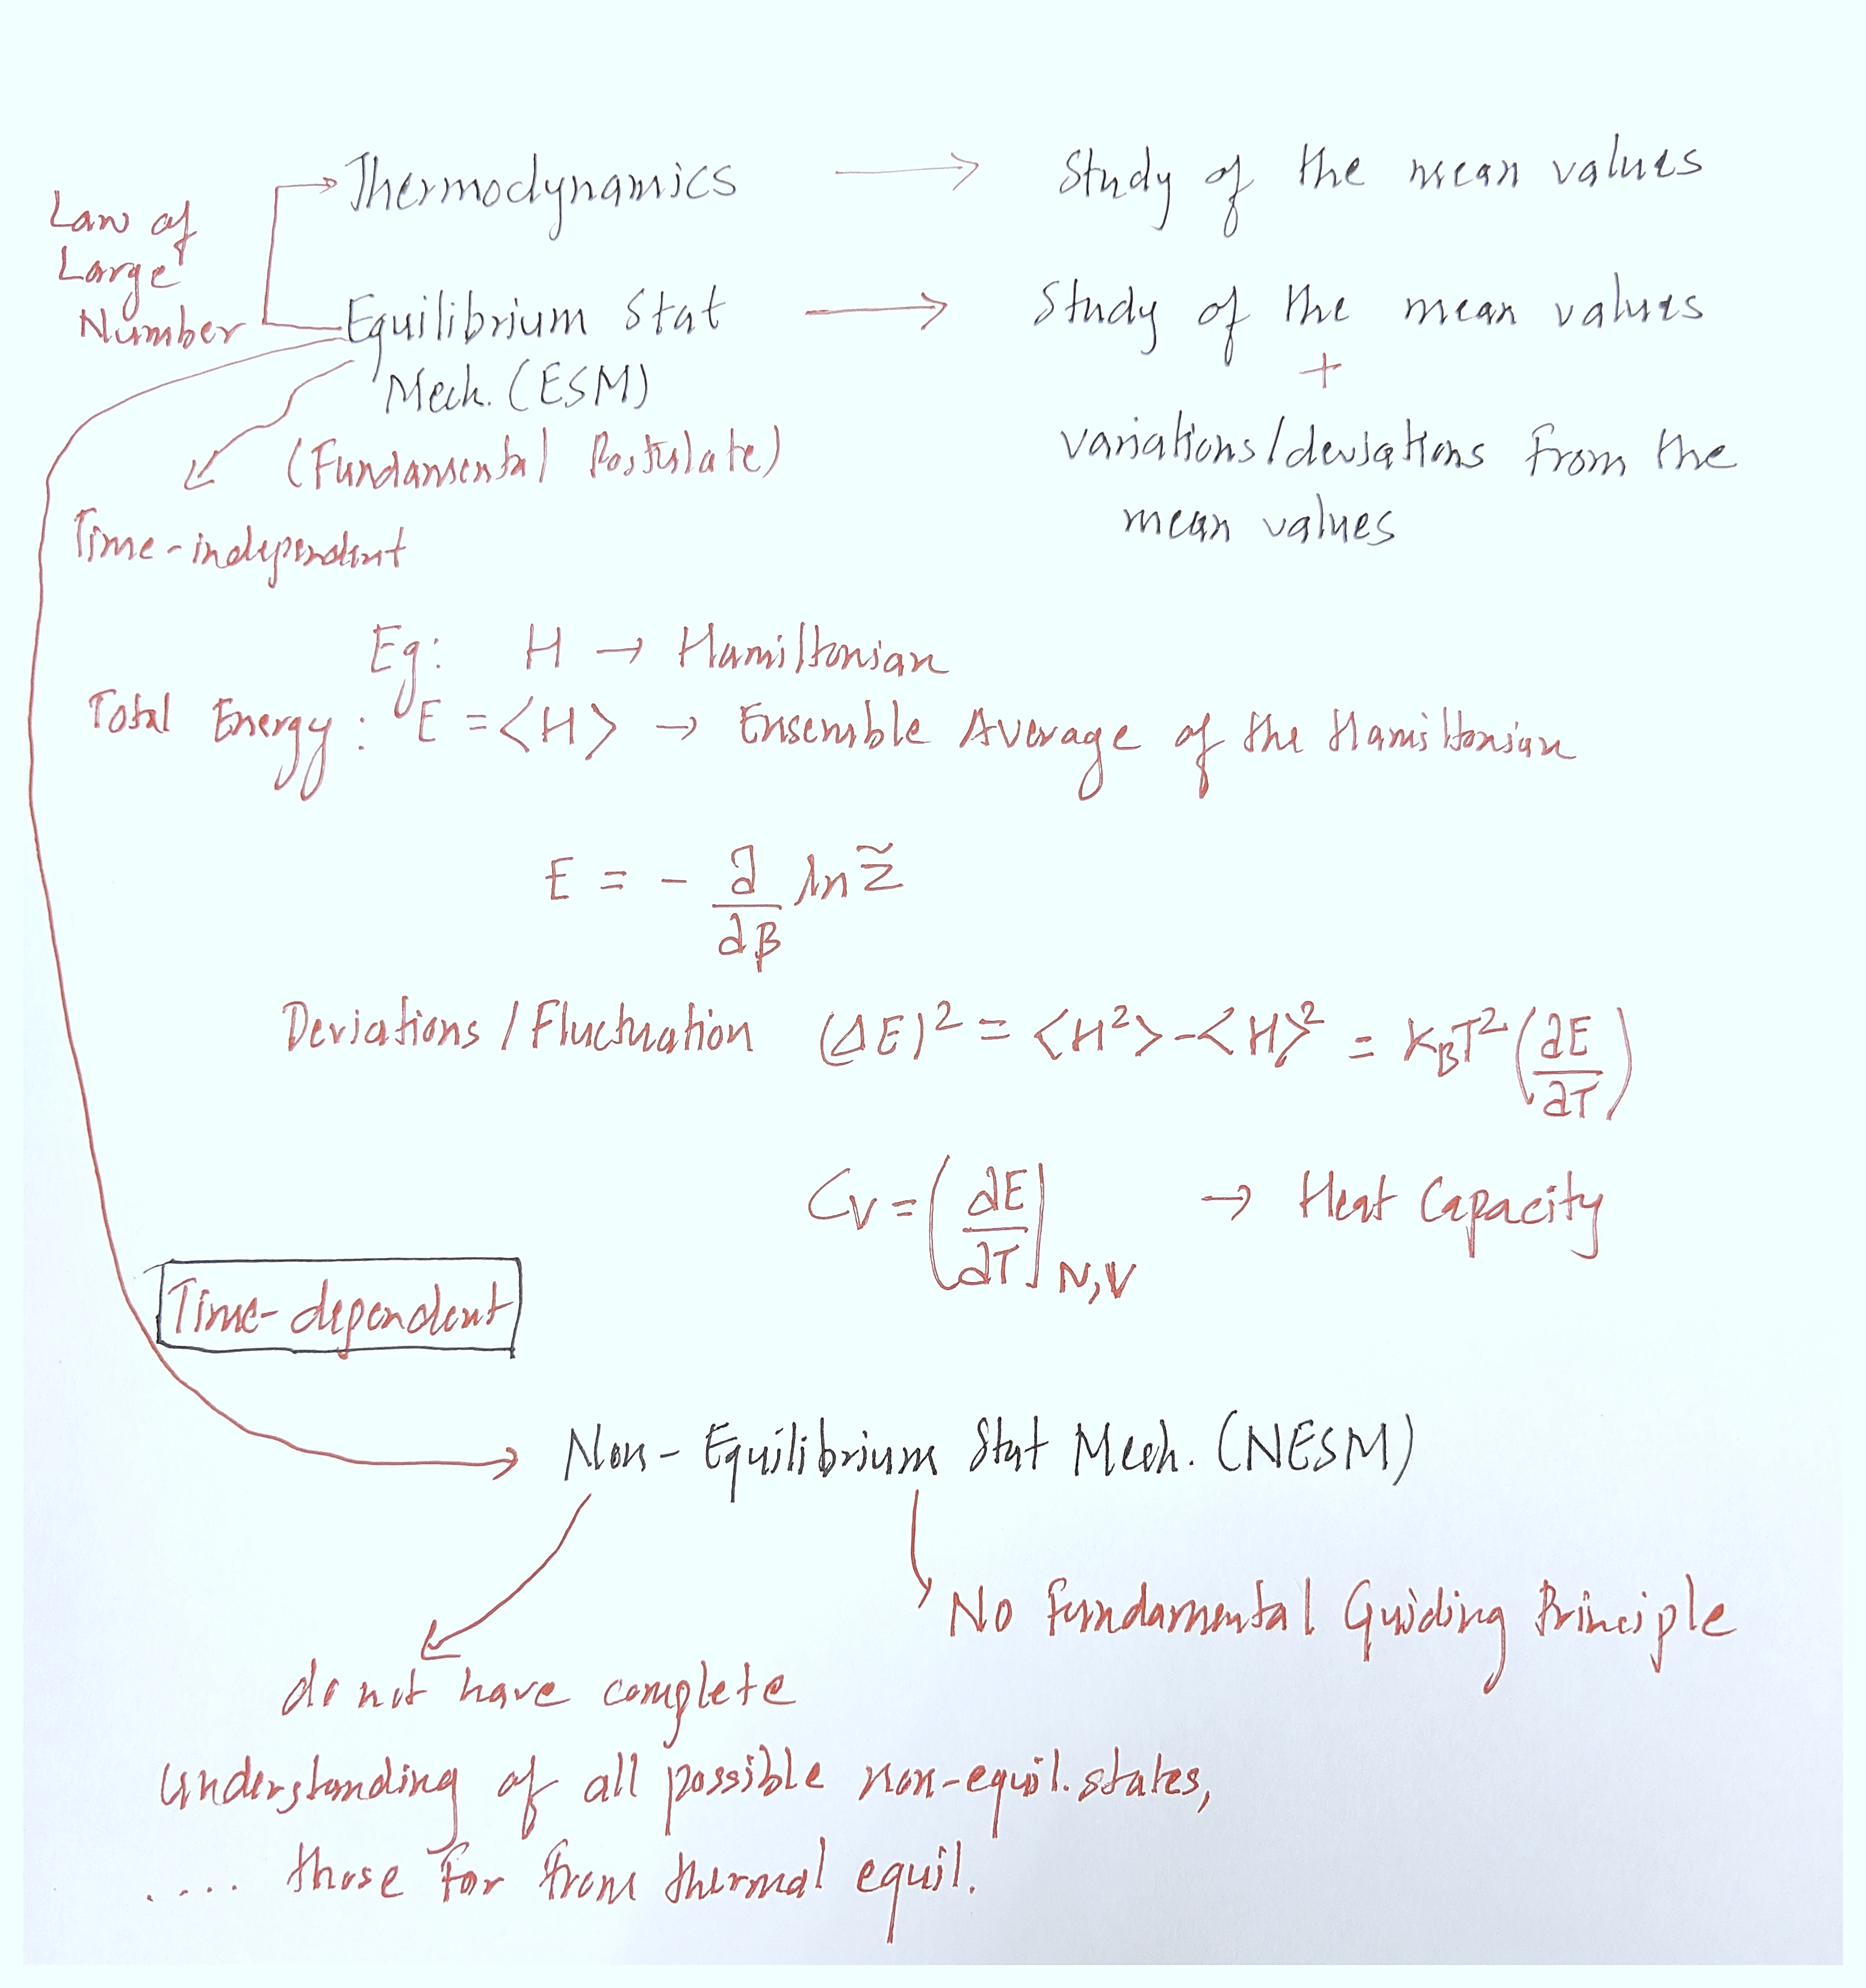 Thermodynamics → Study of the mean values
Law of
Large
Number
Equilibrium Stat → Study of the mean values
+
Mech. (ESM)
variations/deviations from the
(Fundamental Postulate)
mean values
Time-independent
Eg: H → Hamiltonian
Total Energy: E = <H> → Ensemble Average of the Hamiltonian
E = - ∂/∂β ln Z̃
Deviations / Fluctuation (ΔE)² = <H²> - <H>² = K_B T² (∂E/∂T)
C_V = (∂E/∂T)_N,V → Heat Capacity
Time-dependent
Non-Equilibrium Stat Mech. (NESM)
No Fundamental Guiding Principle
do not have complete
understanding of all possible non-equil. states,
..... those far from thermal equil.